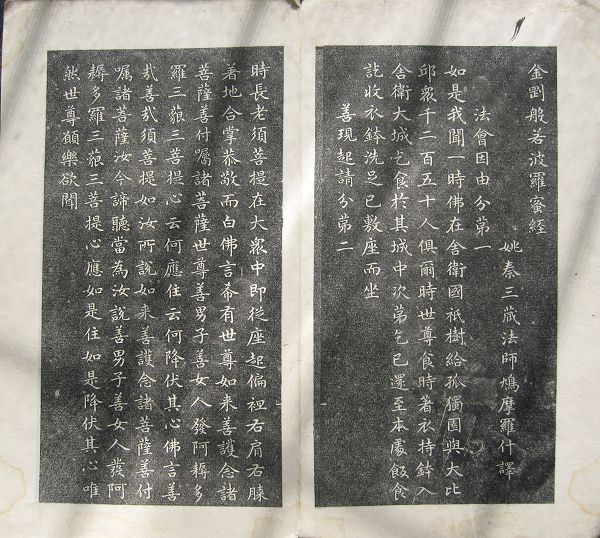 金剛般若波羅蜜經
姚秦三藏法師鳩摩羅什譯
法會因由分第一
如是我聞一時佛在舍衛國祇樹給孤獨園與大比
邱眾千二百五十人俱爾時世尊食時著衣持鉢入
舍衛大城乞食於其城中次第乞已還至本處飯食
訖收衣鉢洗足已敷座而坐
善現起請分第二
時長老須菩提在大眾中即從座起偏袒右肩右膝
著地合掌恭敬而白佛言希有世尊如来善護念諸
菩薩善付囑諸菩薩世尊善男子善女人發阿耨多
羅三藐三菩提心云何應住云何降伏其心佛言善
哉善哉須菩提如汝所說如来善護念諸菩薩善付
囑諸菩薩汝今諦聽當為汝說善男子善女人發阿
耨多羅三藐三菩提心應如是住如是降伏其心唯
然世尊願樂欲聞